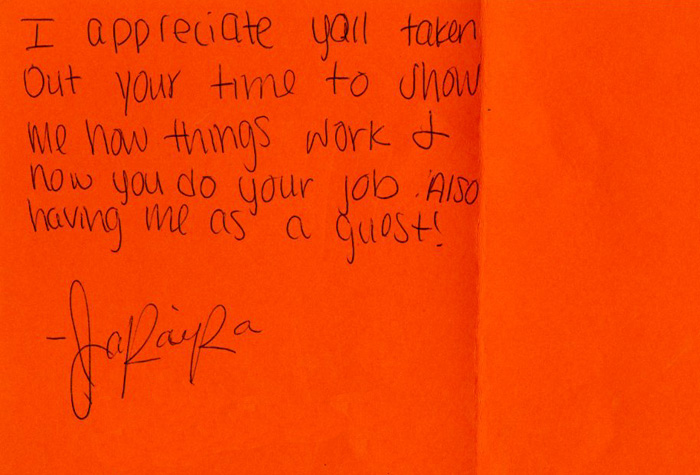 I appreciate yall taken
out your time to show
me how things work &
how you do your job. Also
having me as a guest!
-JaRayRa